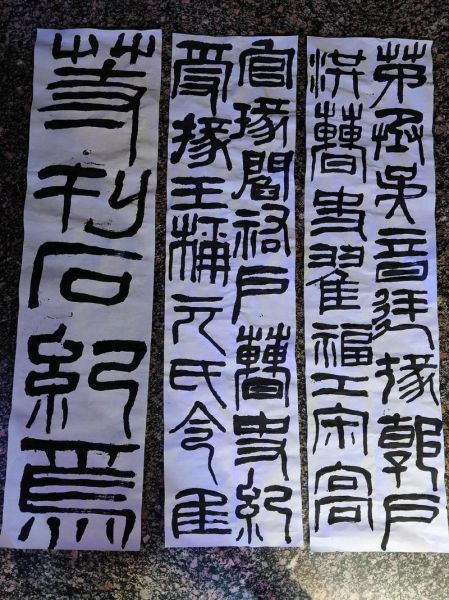 茅丞吳音廷掾郭戶
洪曹史翟福工宋高
官掾閻祐戶曹史紀
受掾王元氏令匡
等刊石紀焉